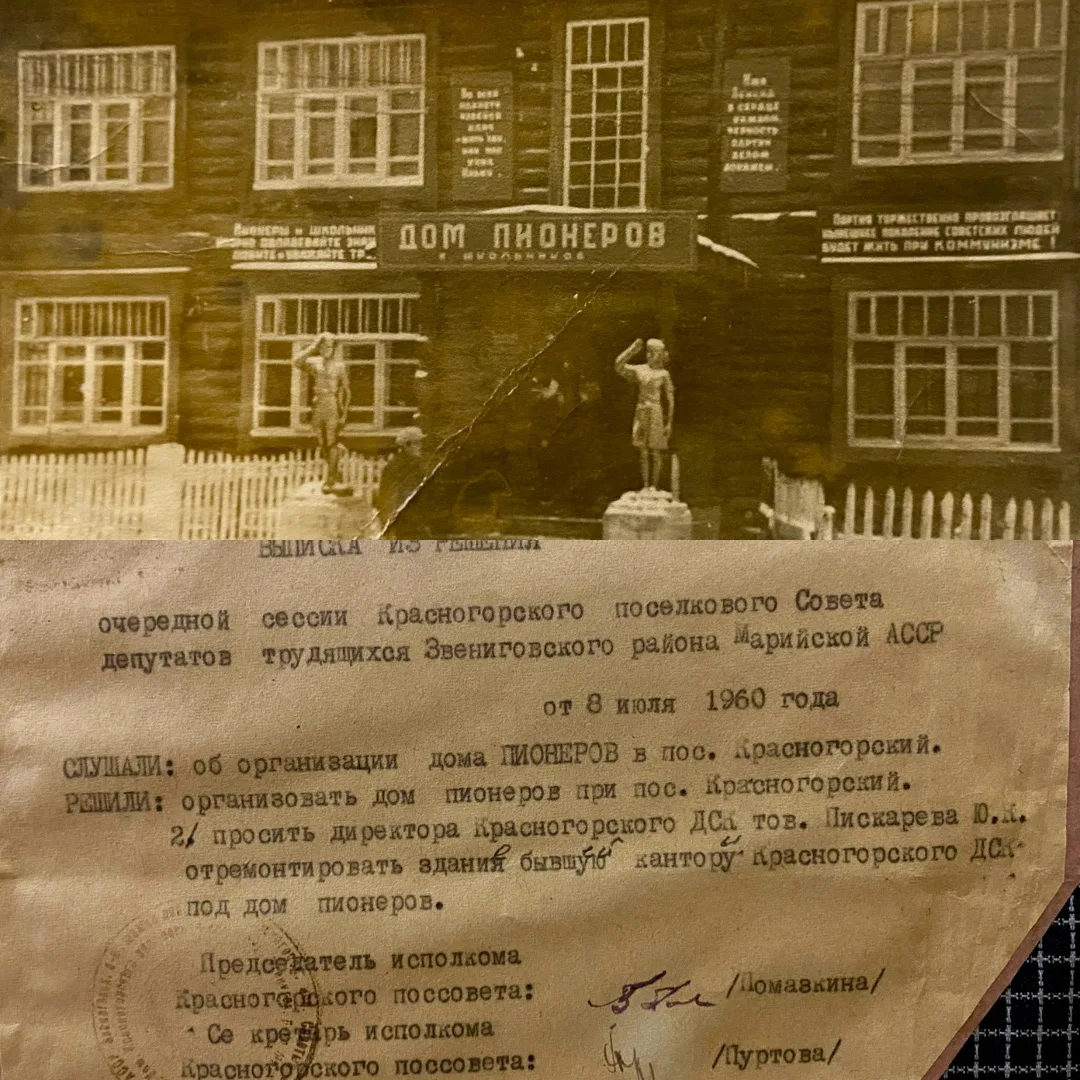 Во всей
планете
клич
Имя
Ленина
в сердце
каждом,
верность
партии
делом
докажем.
Пионеры и школьник
овладевайте зна
любите и уважайте тр
ДОМ ПИОНЕРОВ
и школьников
Партия торжественно провозглашает:
нынешнее поколение советских людей
будет жить при коммунизме!
ВЫПИСКА ИЗ РЕШЕНИЯ
очередной сессии Красногорского поселкового Совета
депутатов трудящихся Звениговского района Марийской АССР
от 8 июля 1960 года
СЛУШАЛИ: об организации дома ПИОНЕРОВ в пос. Красногорский.
РЕШИЛИ: организовать дом пионеров при пос. Красногорский.
2/ просить директора Красногорского ДСК тов. Пискарева Ю.К.
отремонтировать здание бывшую кантору Красногорского ДСК
под дом пионеров.
Председатель исполкома
Красногорского поссовета: /Помазкина/
Секретарь исполкома
Красногорского поссовета: /Пуртова/